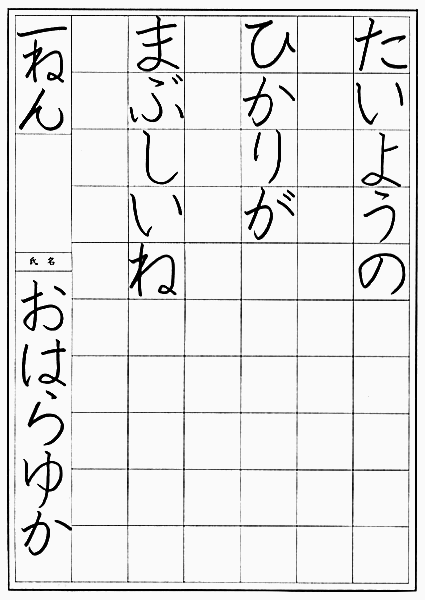 たいようの
ひかりが
まぶしいね
一ねん
氏名
おはらゆか